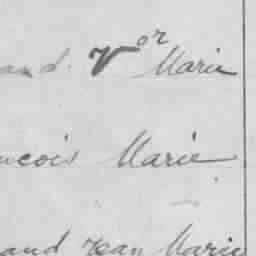 and Vor Marie
ncois Marie
and Jean Marie